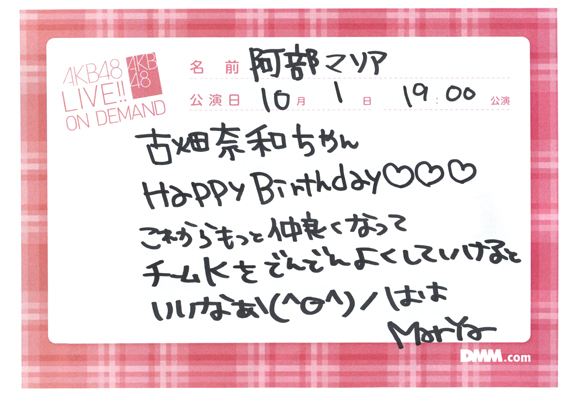 AKB48
LIVE!!
ON DEMAND
AKB
48
名前 阿部マリア
公演日 10月1日 19:00公演
古畑奈和ちゃん
HaPPy Birthday♡♡♡
これからもっと仲良くなって
チームKをどんどんよくしていけると
いいなあ\(^o^)/はは
Marya
DMM.com